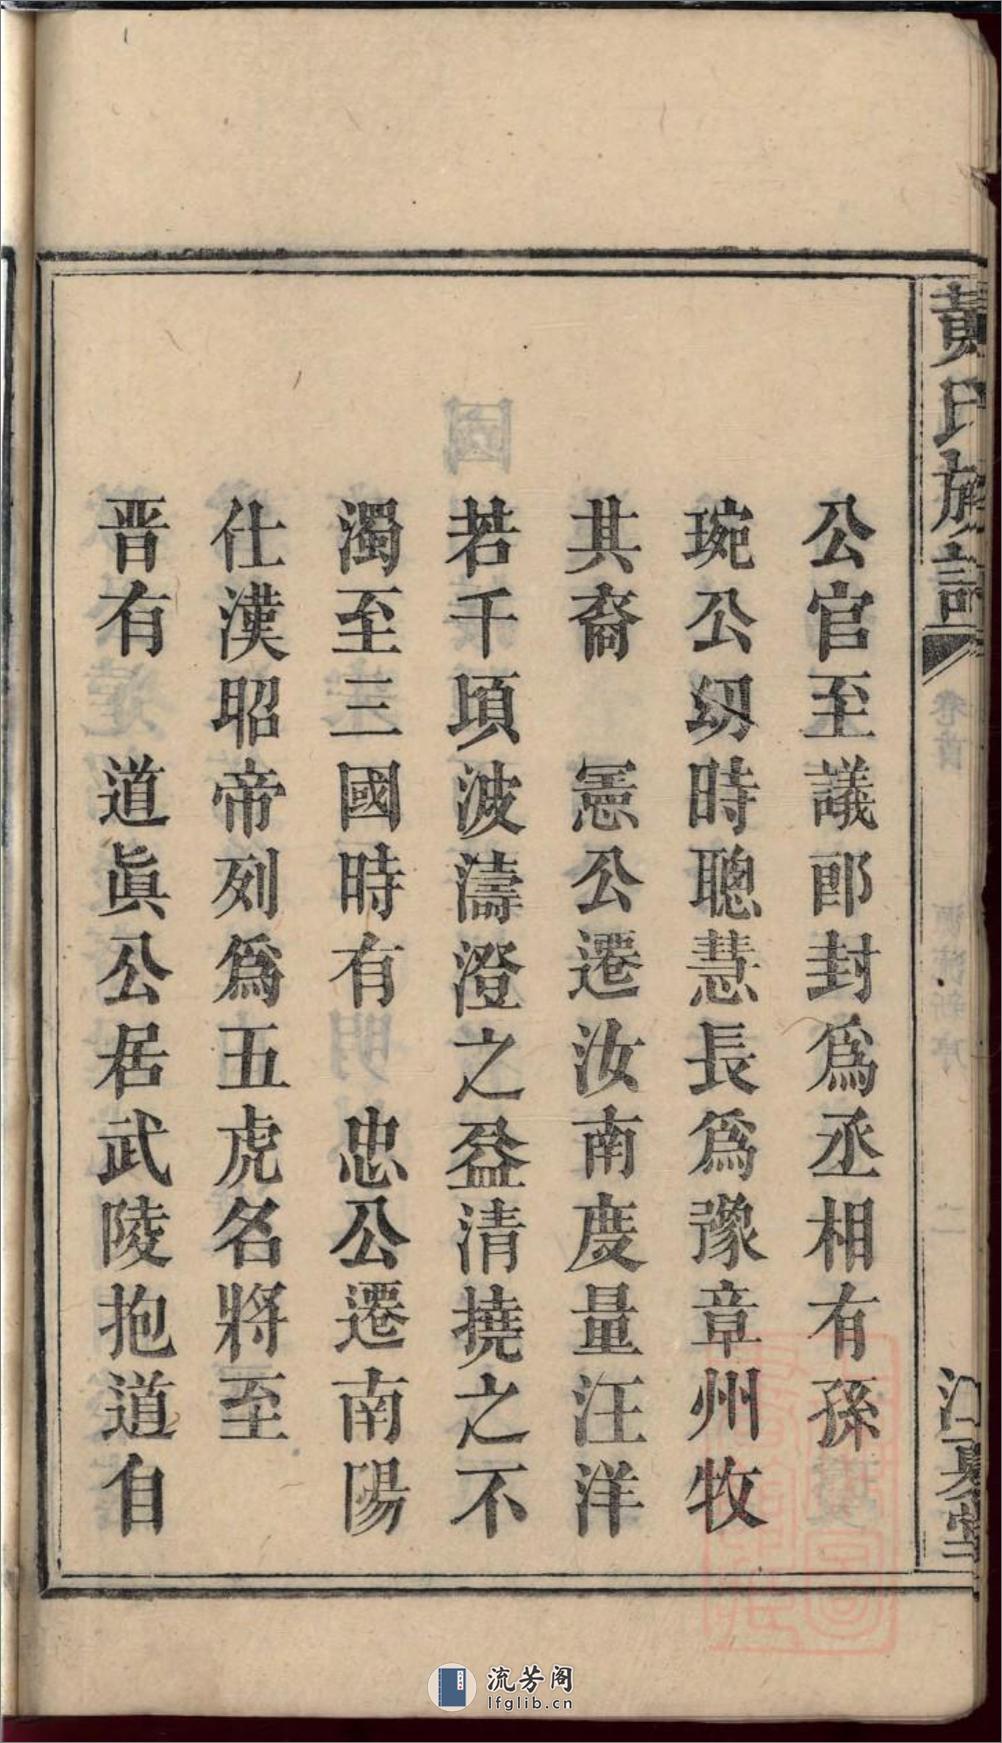 黃氏族譜
江夏堂
公官至議郎封爲丞相有孫
琬公㓜時聰慧長爲豫章州牧
其裔　憲公遷汝南度量汪洋
若千頃波濤澄之益清撓之不
濁至三國時有　忠公遷南陽
仕漢昭帝列爲五虎名將至
晋有　道眞公居武陵抱道自
流芳阁
lfglib.cn